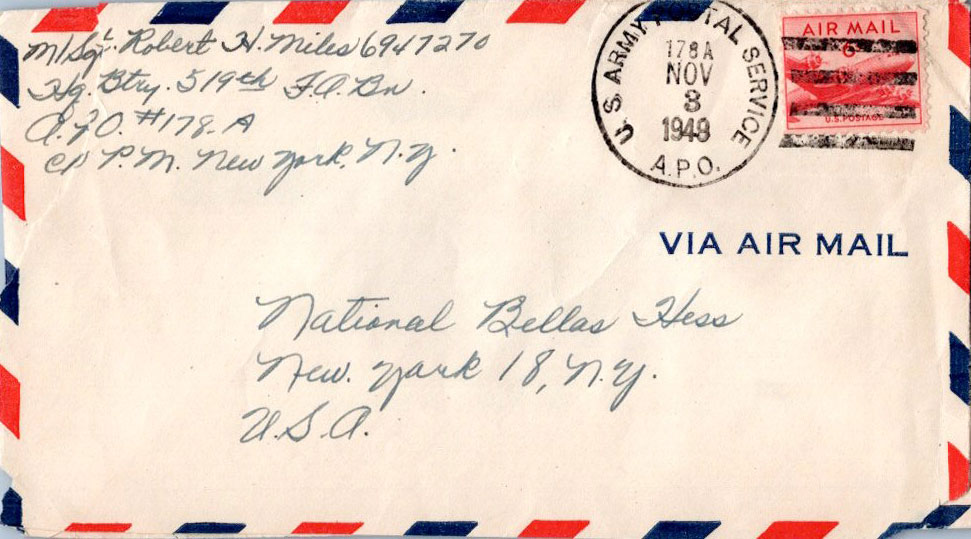 M/Sgt. Robert H. Miles 6947270
Hq. Btry. 519th F.A. Bn.
A.P.O. #178-A
c/o P.M. New York, N.Y.
U.S. ARMY POSTAL SERVICE
178A
NOV
3
1949
A.P.O.
AIR MAIL
6¢
U.S. POSTAGE
VIA AIR MAIL
National Bellas Hess
New York 18, N.Y.
U.S.A.